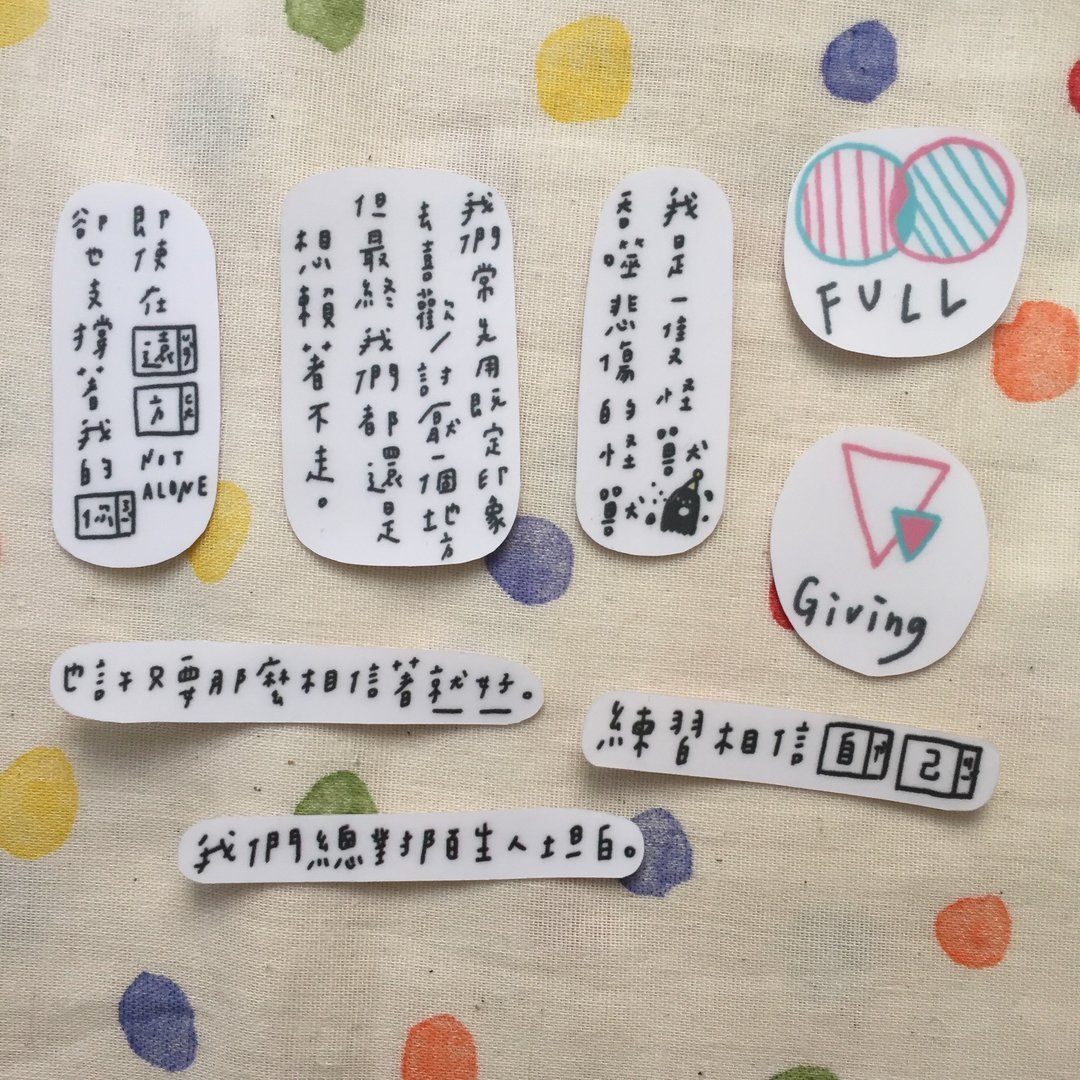 即使在遠方
NOT
ALONE
卻也支撐著我的你
我們常先用既定印象
去喜歡/討厭一個地方
但最終我們都還是
想賴著不走。
我是一隻怪獸
吞噬悲傷的怪獸
FULL
Giving
也許只要那麼相信著就好。
練習相信自己
我們總對陌生人坦白。